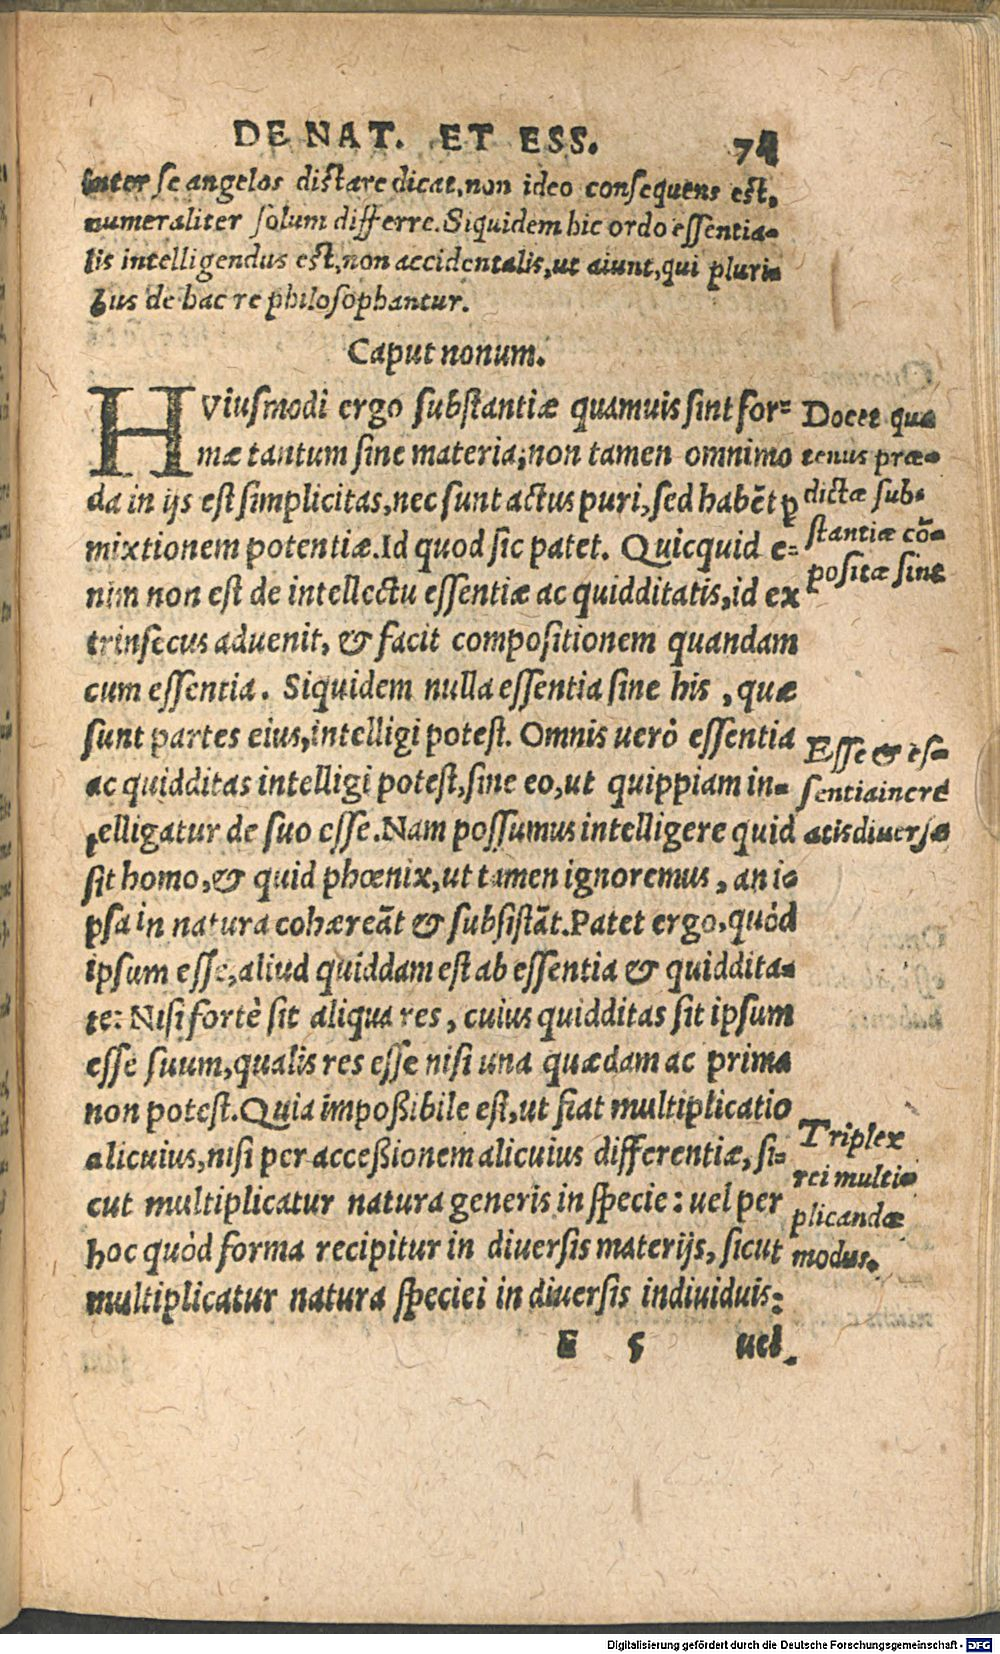 DE NAT. ET ESS. 74
inter se angelos distare dicat, non ideo consequens est,
numeraliter solum differre. Siquidem hic ordo essentia-
lis intelligendus est, non accidentalis, ut aiunt, qui pluri
bus de hac re philosophantur.
Caput nonum.
HViusmodi ergo substantiæ quamuis sint for-
mæ tantum sine materia, non tamen omnimo
da in ijs est simplicitas, nec sunt actus puri, sed habēt ꝑ
mixtionem potentiæ. Id quod sic patet. Quicquid e-
nim non est de intellectu essentiæ ac quidditatis, id ex
trinsecus aduenit, & facit compositionem quandam
cum essentia. Siquidem nulla essentia sine his, quæ
sunt partes eius, intelligi potest. Omnis uerò essentia
ac quidditas intelligi potest, sine eo, ut quippiam in-
telligatur de suo esse. Nam possumus intelligere quid
sit homo, & quid phœnix, ut tamen ignoremus, an i-
psa in natura cohæreāt & subsistāt. Patet ergo, quòd
ipsum esse, aliud quiddam est ab essentia & quiddita-
te: Nisi fortè sit aliqua res, cuius quidditas sit ipsum
esse suum, qualis res esse nisi una quædam ac prima
non potest. Quia impoßibile est, ut fiat multiplicatio
alicuius, nisi per acceßionem alicuius differentiæ, si-
cut multiplicatur natura generis in specie: uel per
hoc quòd forma recipitur in diuersis materijs, sicut
multiplicatur natura speciei in diuersis indiuiduis:
E 5 uel
Docet qua
tenus præ-
dictæ sub-
stantiæ cō-
positæ sint
Esse & es-
sentia in cre
atis diuersa
Triplex
rei multi-
plicandæ
modus.
Digitalisierung gefördert durch die Deutsche Forschungsgemeinschaft - DFG